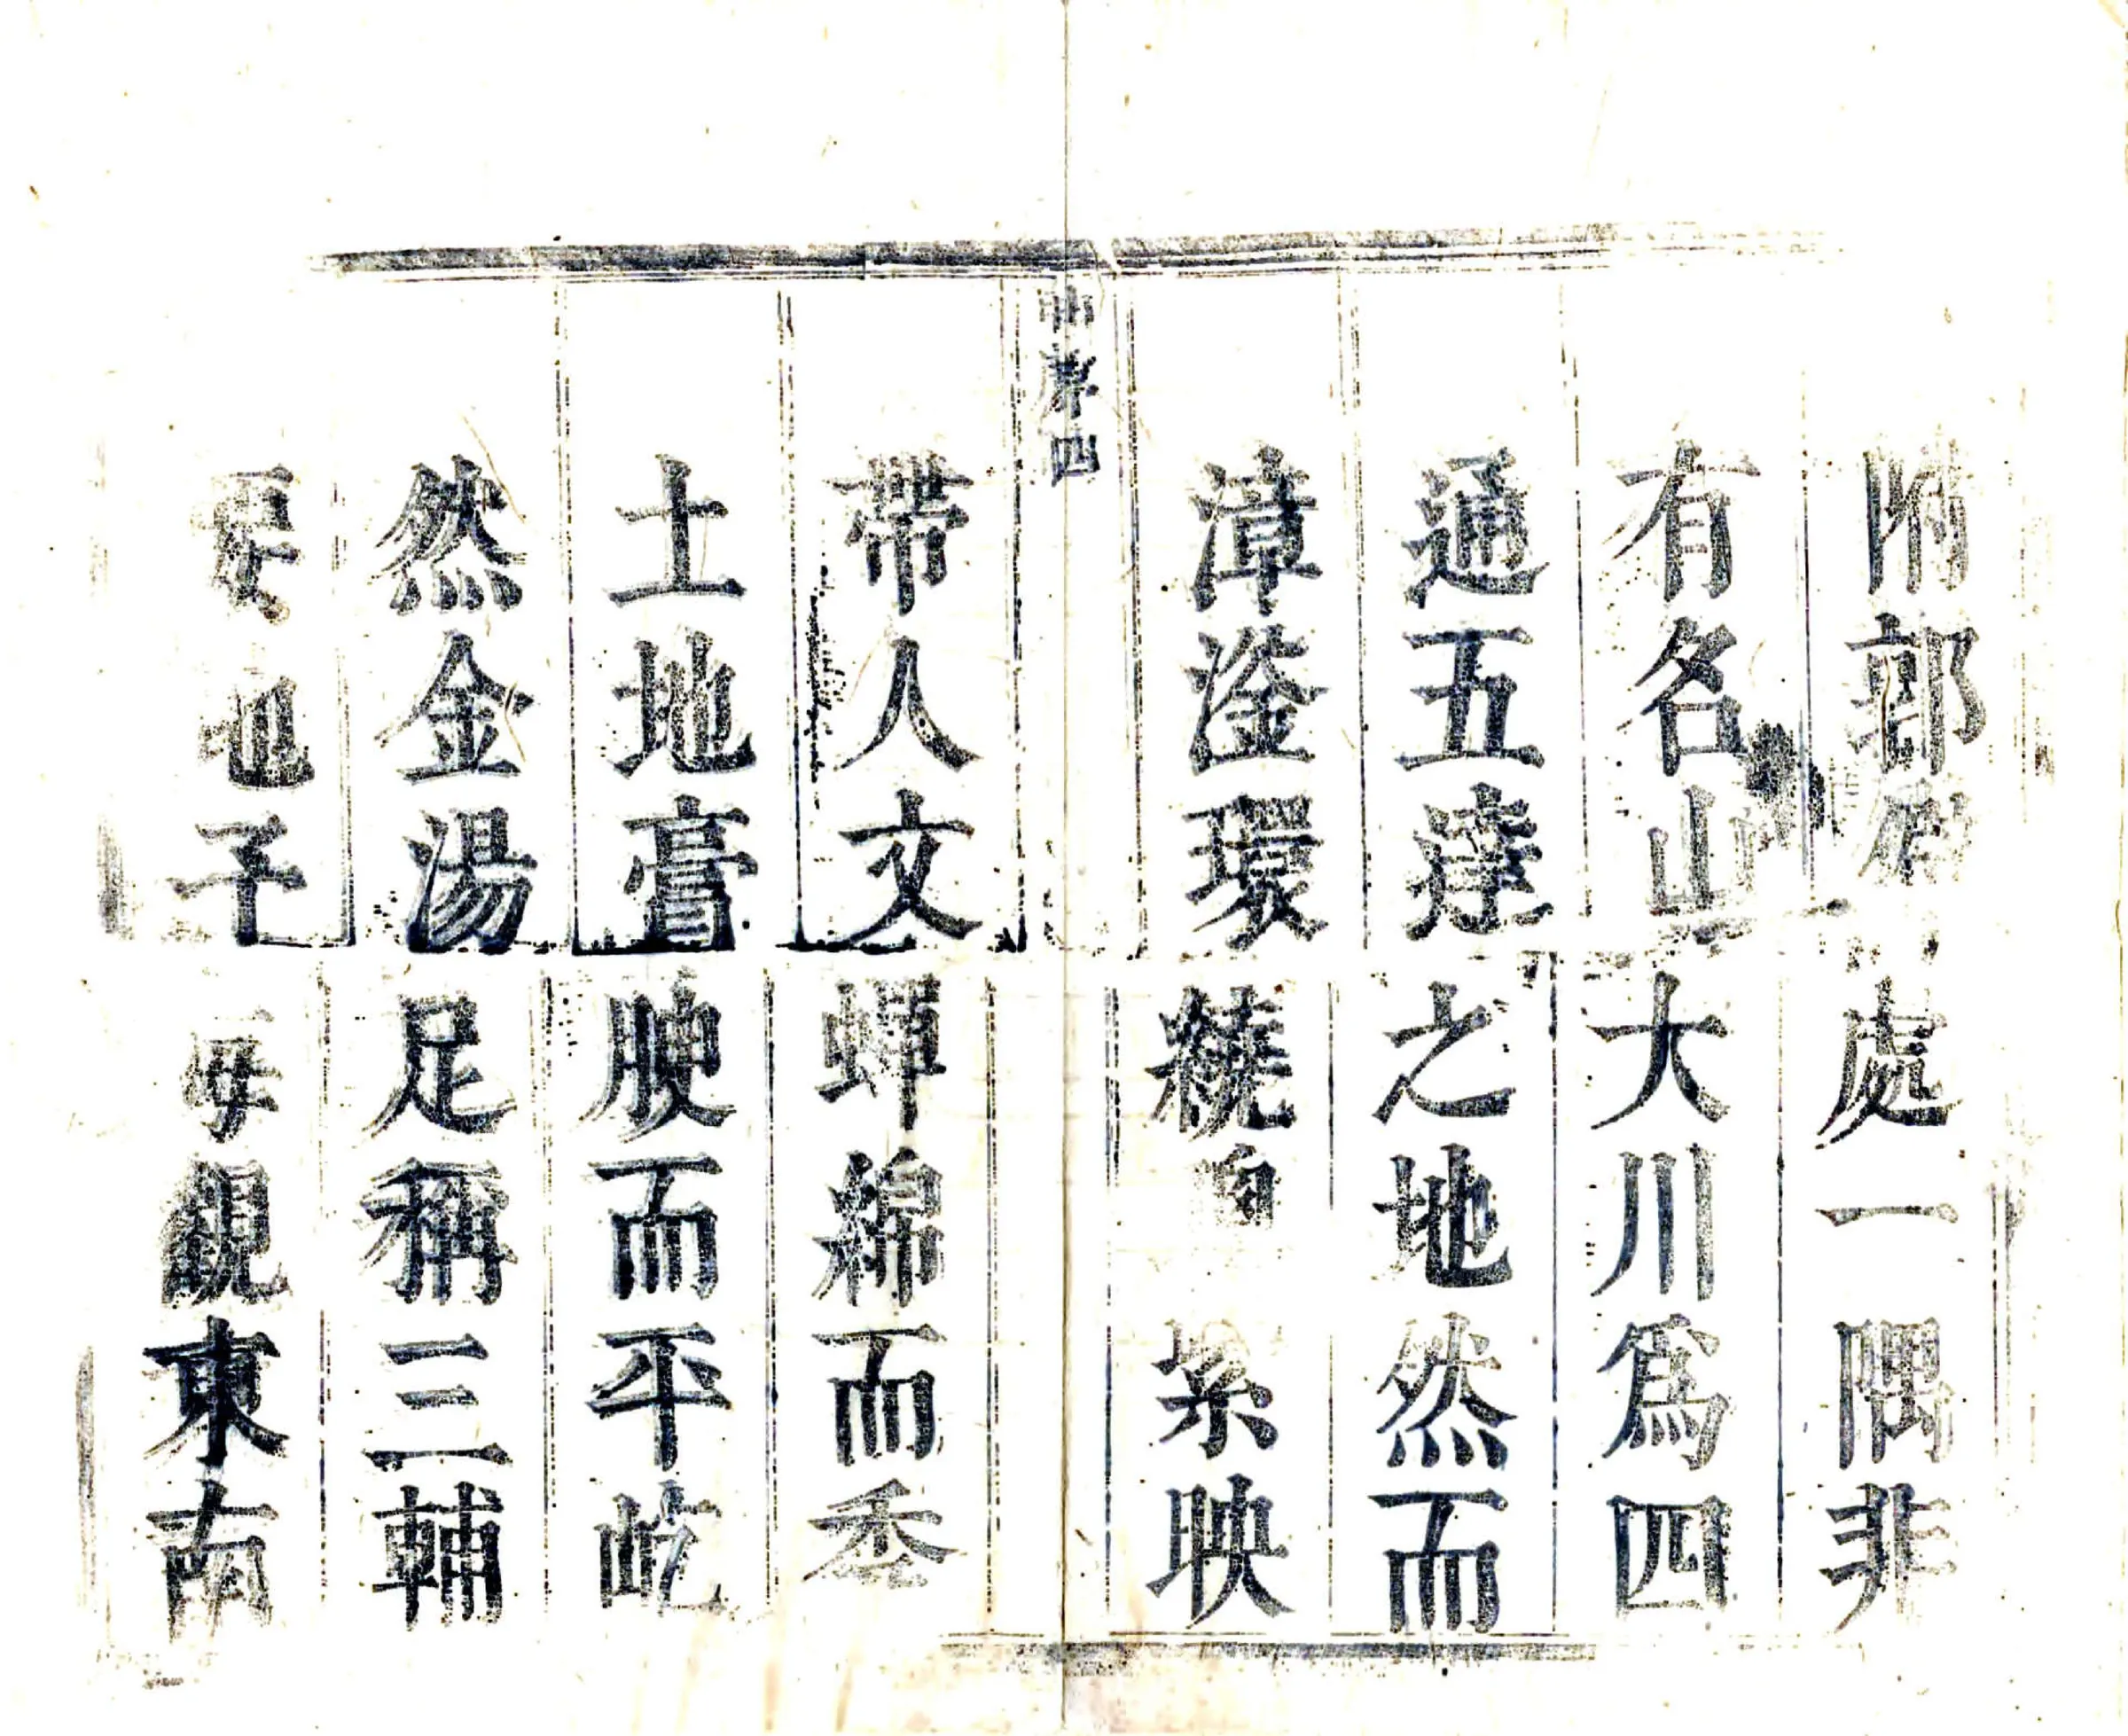 附郭 處一隅非
有名山大川爲四
通五達之地然而
漳滏環繞自 紫映
帶人文蟬綿而秀
土地膏腴而平屹
然金湯足稱三輔
要地予每觀東南
四